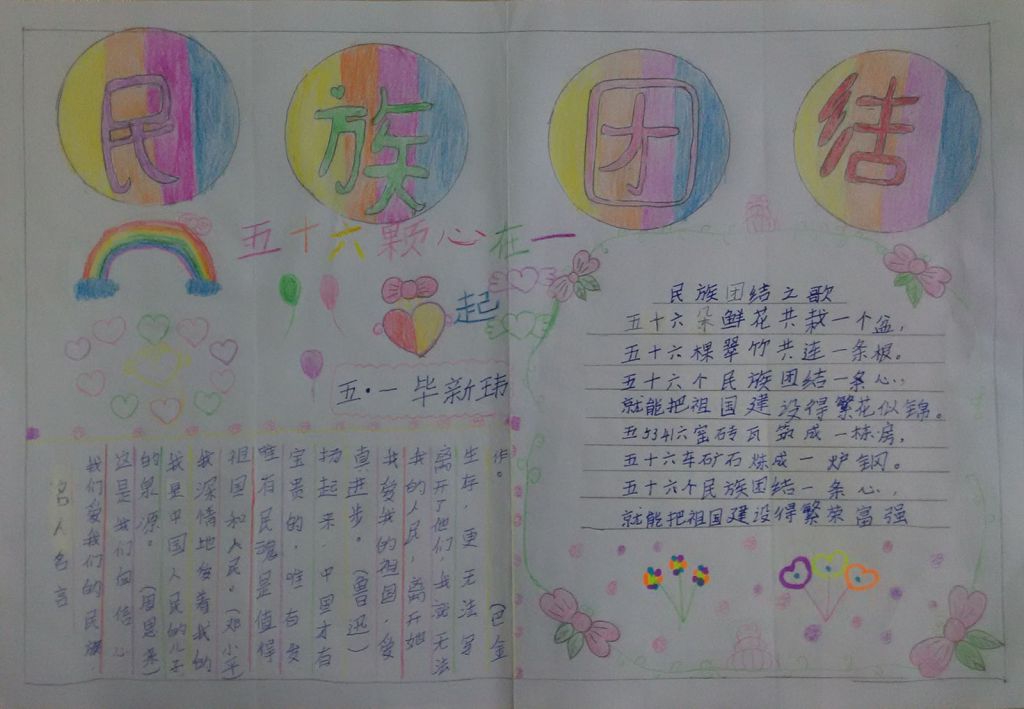 民族团结
五十六颗心在一
起
五.一 毕新玮
名人名言
我们爱我们的民族
这是我们自信心
的泉源。(周恩来)
我是中国人民的儿子
我深情地发着我的
祖国和人民。(邓小平)
唯有民魂是值得
宝贵的,唯有发
扬起来,中国才有
真进步。(鲁迅)
我爱我的祖国,爱
我的人民,离开她
离开了他们,我就无法
生存,更无法写
作。(巴金
民族团结之歌
五十六朵鲜花共栽一个盆,
五十六棵翠竹共连一条根。
五十六个民族团结一条心,
就能把祖国建设得繁花似锦。
五5341六窑砖瓦筑成一栋房,
五十六车矿石炼成一炉钢。
五十六个民族团结一条心,
就能把祖国建设得繁荣富强